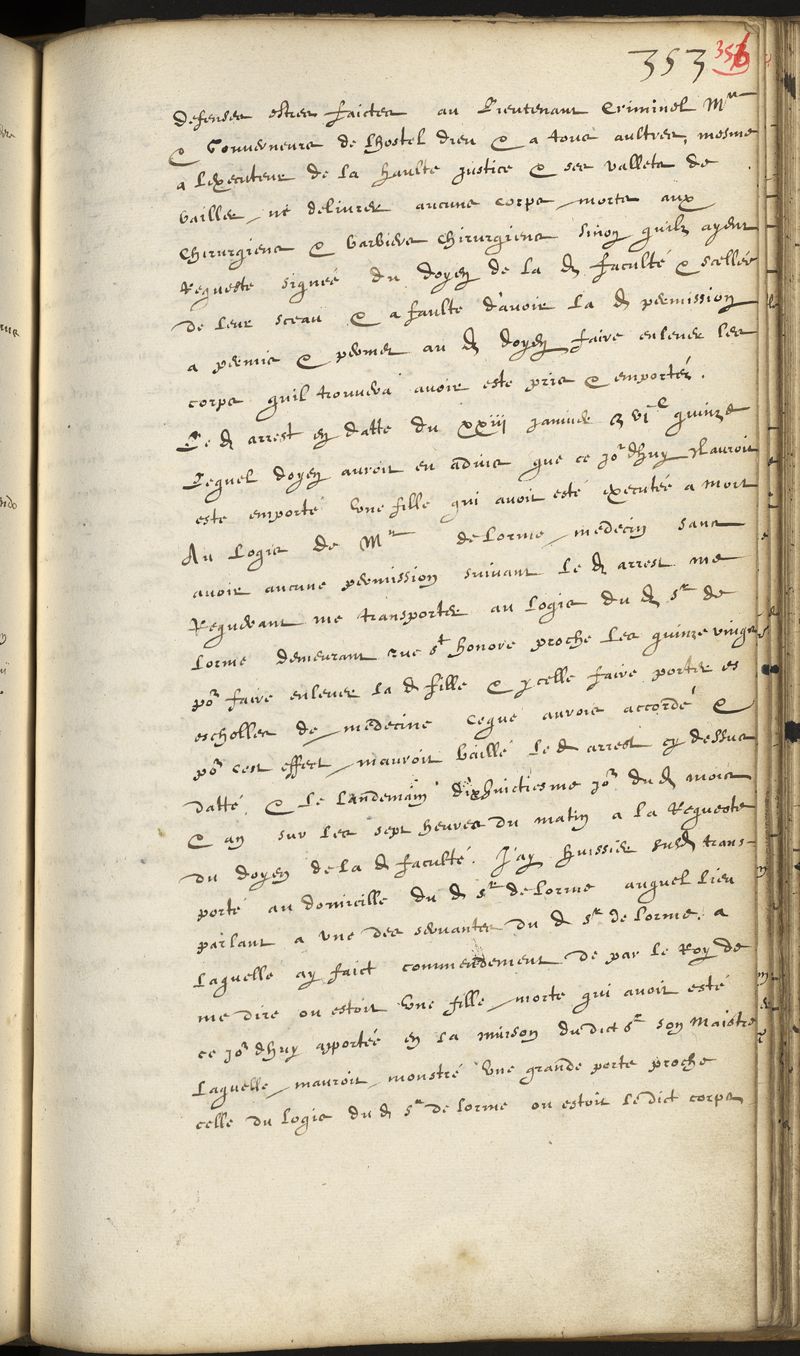 353 356
defenses estres faictes au Lieutenant Criminel Mrs
& Gouverneurs de lhostel dieu & a tous aultres, mesme
a lexecuteur de la haulte justice & ses vallets de
bailler ne delivrer aucuns corps morts aux
Chirurgiens & barbiers Chirurgiens sinon quilz ayent
Requeste signeé du doyen de la d faculté & scellée
de leur sceau & a faulte d'avoir la d permission
a permis & permet au d doyen faire enlever les
corps quil trouvera avoir esté pris & emportéz.
Le d arrest en datte du xxiii janvier vic quinze
Lequel doyen auroit eu advis que ce jor dhuy Ilauroit
este emporté une fille qui avoit esté executée a mort
Au logis de Mr delorme medecin sans
avoir aucune permission suivant le d arrest me
Requerant me transporter au logis du d sr de
lorme demeurant rue st honore proche les quinze vings
por faire enlever la d fille & ycelle faire porter es
escholles de medecine ceque aurois accordé &
por cest effect mauroit baillé le d arrest cy dessus
datté. & le landemain dixhuictiesme jor dud mois
& an sur les sept heures du matin a la Requeste
du doyen de la d faculté. J'ay huissier susd trans-
porté au domicille du d sr delorme auquel lieu
parlant a une des servantes du d sr de lorme. a
laquelle ay faict commendement de par le Roy de
me dire ou estoit une fille morte qui avoit esté
ce jor dhuy apporteé en la maison dudict sr son maistre
laquelle mauroit monstré une grande porte proche
celle du logis du d sr de lorme ou estoit ledict corps